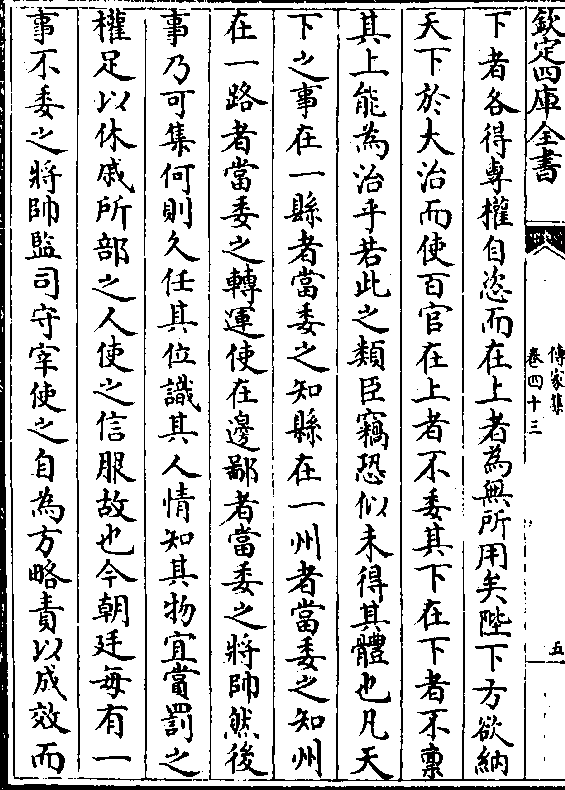 欽定四庫全書
傳家集
卷四十三
五
下者各得專權自恣而在上者為無所用矣陛下方欲納
天下於大治而使百官在上者不委其下在下者不稟
其上能為治乎若此之類臣竊恐似未得其體也凡天
下之事在一縣者當委之知縣在一州者當委之知州
在一路者當委之轉運使在邊鄙者當委之將帥然後
事乃可集何則久任其位識其人情知其物宜賞罰之
權足以休戚所部之人使之信服故也今朝廷每有一
事不委之將帥監司守宰使之自為方略責以成效而